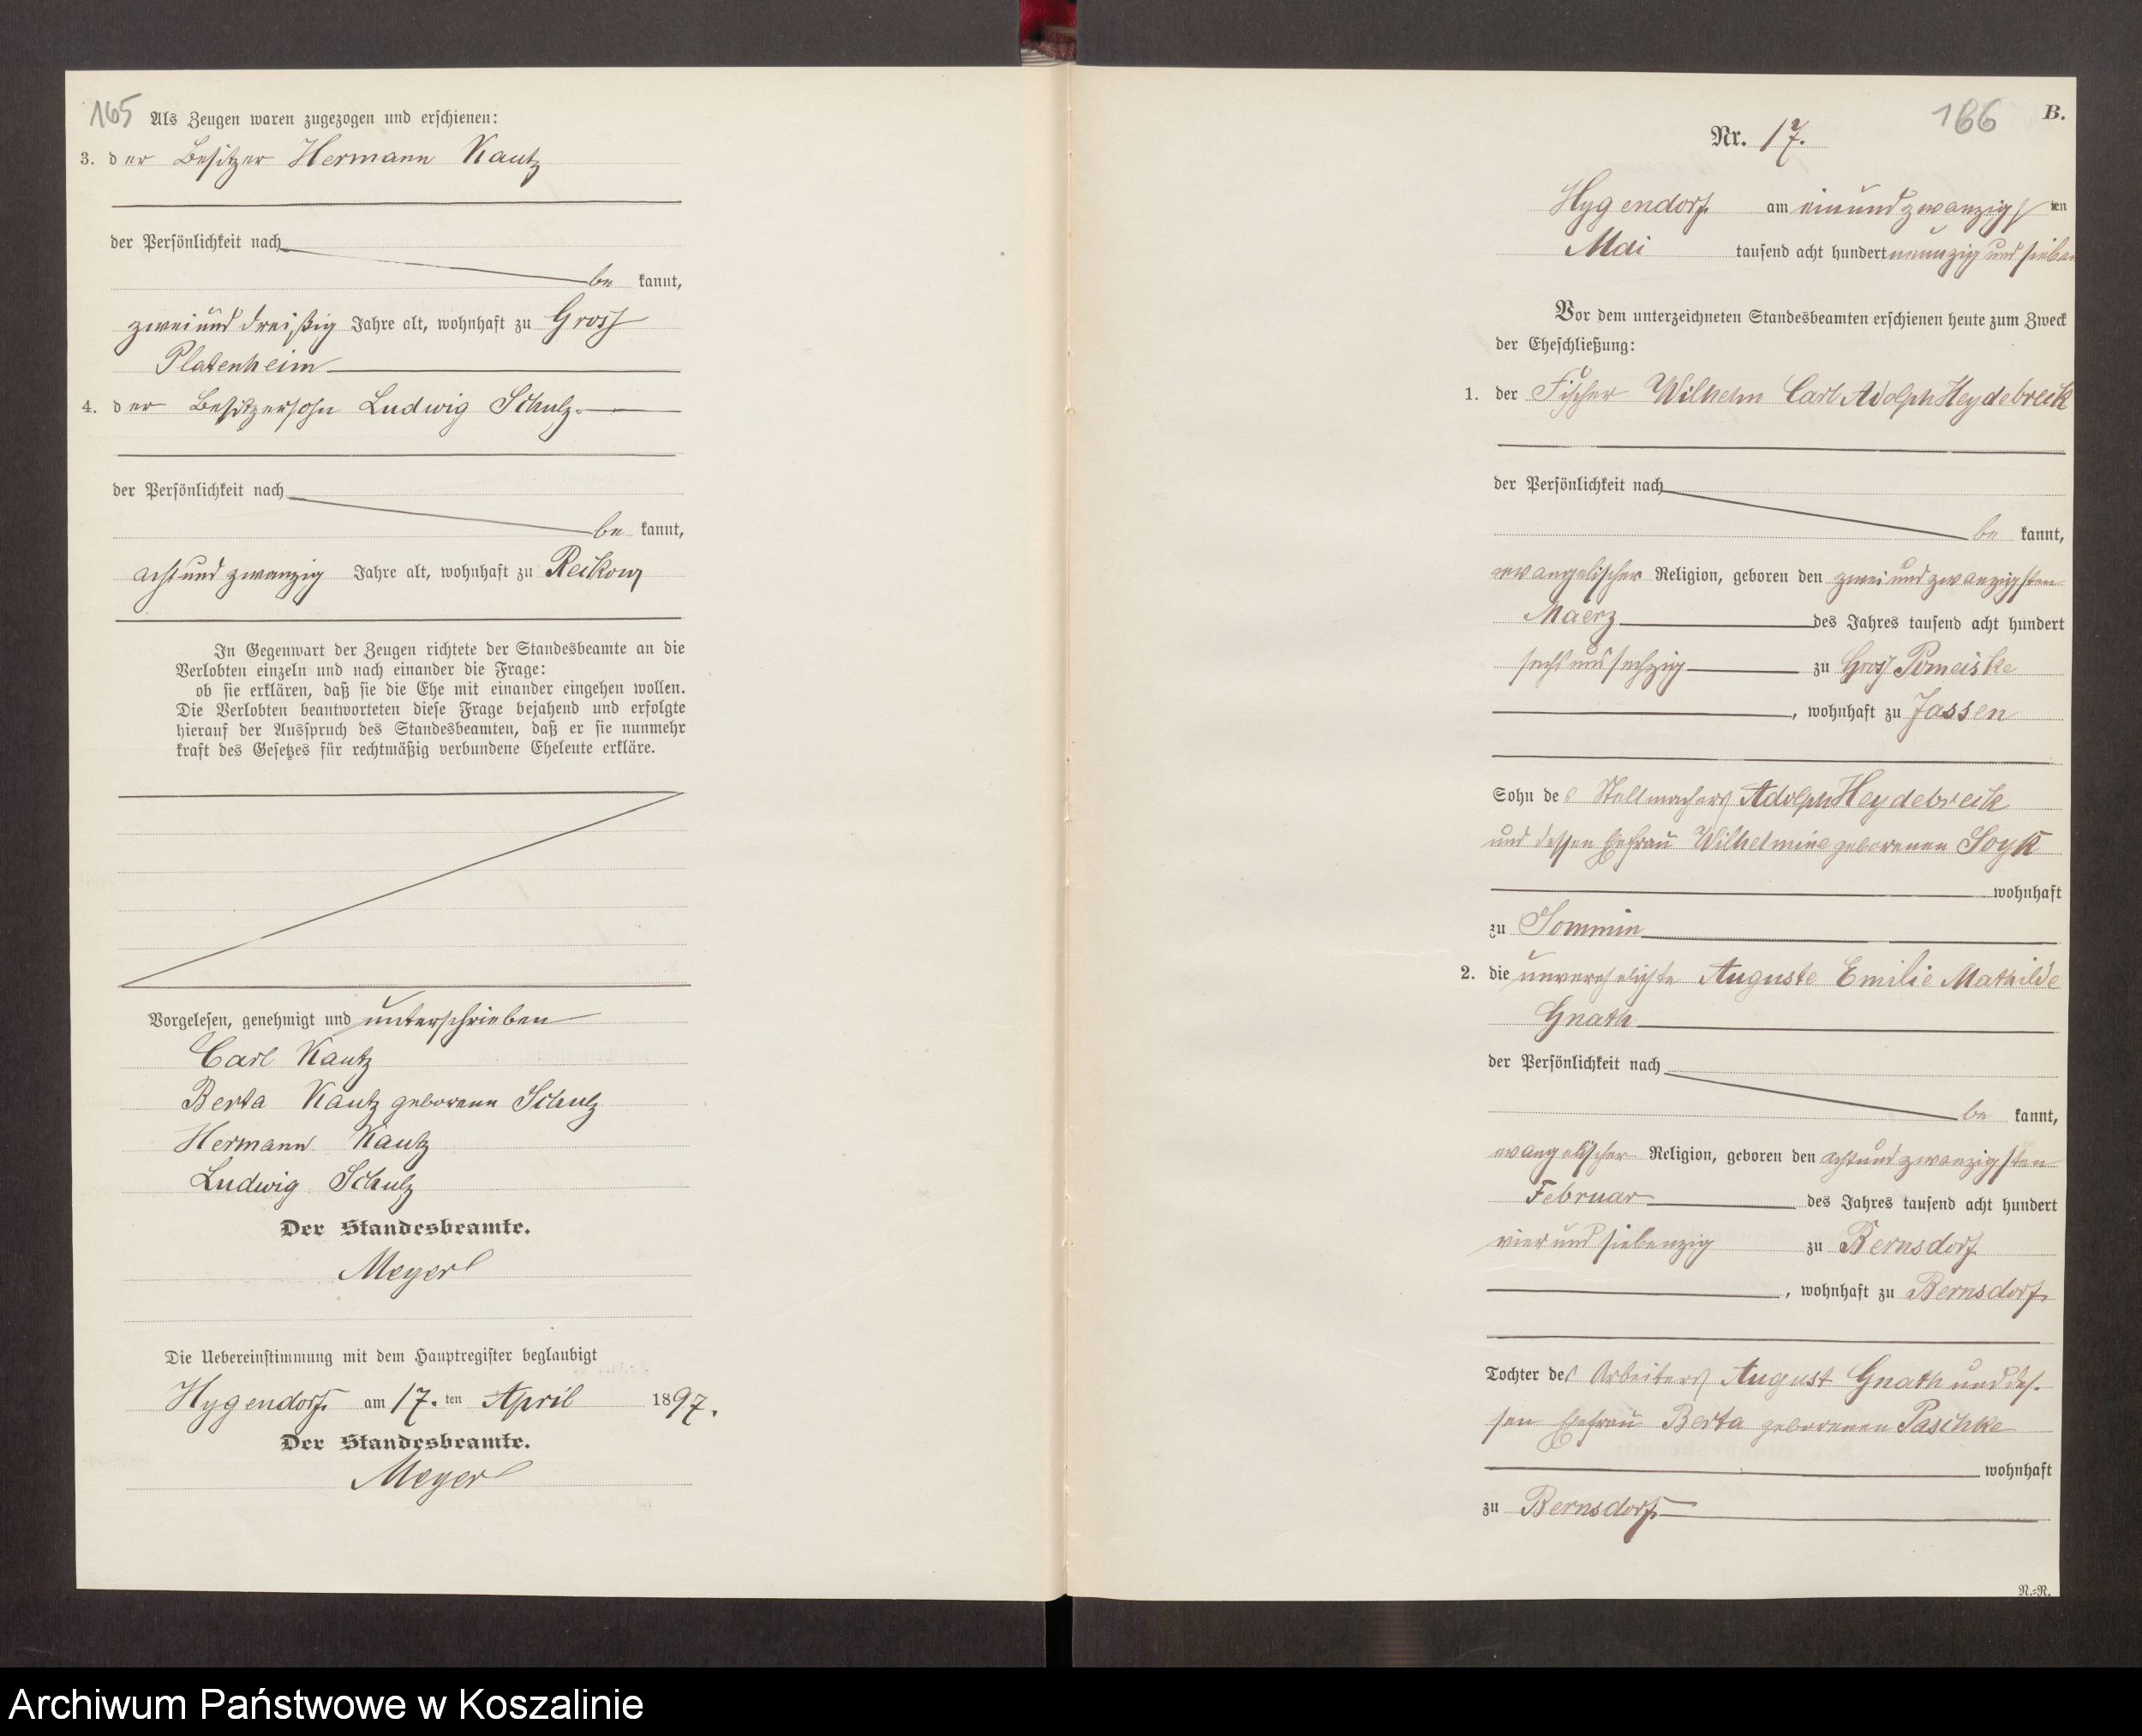 165 Als Zeugen waren zugezogen und erschienen:
3. der Besitzer Hermann Kautz
der Persönlichkeit nach
be kannt,
zweiund dreißig Jahre alt, wohnhaft zu Gross
Platenheim
4. der Besitzersohn Ludwig Schulz
der Persönlichkeit nach
be kannt,
achtund zwanzig Jahre alt, wohnhaft zu Reckow
In Gegenwart der Zeugen richtete der Standesbeamte an die
Verlobten einzeln und nach einander die Frage:
ob sie erklären, daß sie die Ehe mit einander eingehen wollen.
Die Verlobten beantworteten diese Frage bejahend und erfolgte
hierauf der Ausspruch des Standesbeamten, daß er sie nunmehr
kraft des Gesetzes für rechtmäßig verbundene Eheleute erkläre.
Vorgelesen, genehmigt und unterschrieben
Carl Kautz
Berta Kautz geborene Schulz
Hermann Kautz
Ludwig Schulz
Der Standesbeamte.
Meyer
Die Uebereinstimmung mit dem Hauptregister beglaubigt
Hygendorf am 17. ten April 1897.
Der Standesbeamte.
Meyer
166 B.
Nr. 17.
Hygendorf am einundzwanzigs ten
Mai tausend acht hundert neunzig und sieben
Vor dem unterzeichneten Standesbeamten erschienen heute zum Zweck
der Eheschließung:
1. der Fischer Wilhelm Carl Adolph Heydebreck
der Persönlichkeit nach
be kannt,
evangelischer Religion, geboren den zweiundzwanzigsten
Maerz des Jahres tausend acht hundert
sechs und sechzig zu Gross Pomeiske
, wohnhaft zu Jassen
Sohn des Stellmachers Adolph Heydebreck
und dessen Ehefrau Wilhelmine geborenen Soyk
wohnhaft
zu Sommin
2. die unverehelichte Auguste Emilie Mathilde
Gnath
der Persönlichkeit nach
be kannt,
evangelischer Religion, geboren den achtundzwanzigsten
Februar des Jahres tausend acht hundert
vier und siebenzig zu Bernsdorf
, wohnhaft zu Bernsdorf
Tochter des Arbeiters August Gnath und des-
sen Ehefrau Berta geborenen Paschke
wohnhaft
zu Bernsdorf
N.-R.
Archiwum Państwowe w Koszalinie